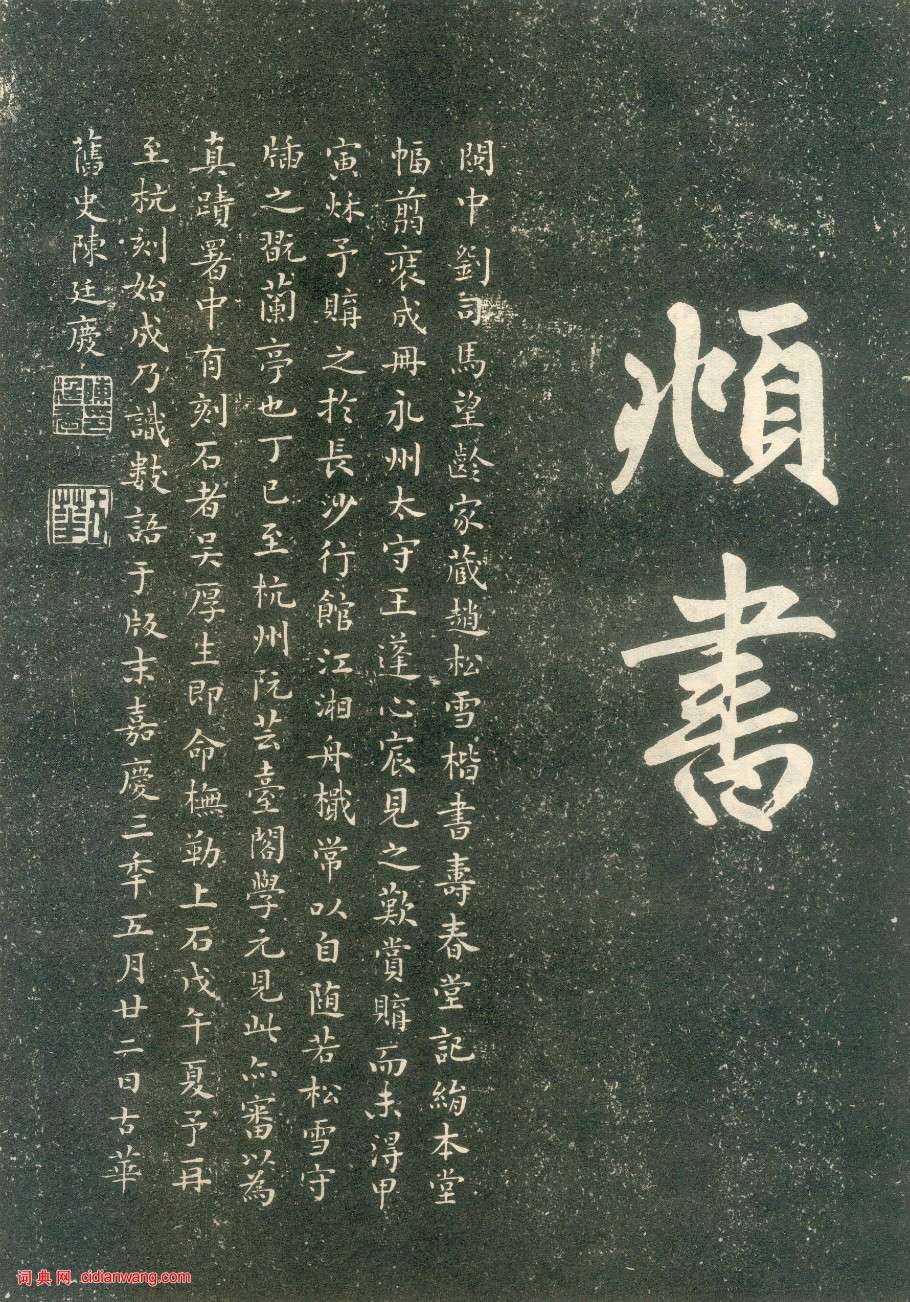 頫書
閩中劉司馬望齡家藏趙松雪楷書壽春堂記絹本堂
幅翦裱成冊永州太守王蓬心宸見之歎賞購而未得甲
寅秌予購之於長沙行館江湘舟檝常以自随若松雪守
之翫蘭亭也丁巳至杭州阮芸臺閣學元見此亦審以為
真蹟署中有刻石者吴厚生即命橅勒上石戊午夏予再
至杭刻始成乃識數語于版末嘉慶三年五月廿二日古華
舊史陳廷慶
古華
词典网 cidianwang.com